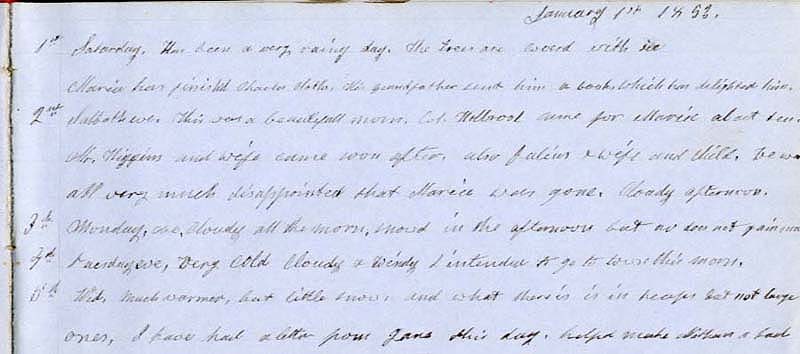 January 1st 1853.
1st Saturday. Has been a very rainy day. The trees are coverd with ice
Maria has finishd Charles Cloths. His grandfather sent him a book, which has delighted him.
2nd Sabbath eve. This was a beautifull morn. Col. Holbrook came for Maria about ten.
Mr. Higgins and wife came soon after. also Julius & wife and child. We were
all very much disappointed that Maria was gone. Cloudy afternoon.
3d Monday, eve, Cloudy all the morn, snowd in the afternoon but no does not gain much
4th Tuesday eve, Very Cold Cloudy & Windy I intended to go to town this morn.
5th Wed. much warmer, but little snow, and what there is is in heaps but not large
ones, I have had a letter from Jane this day. helpd make a bed